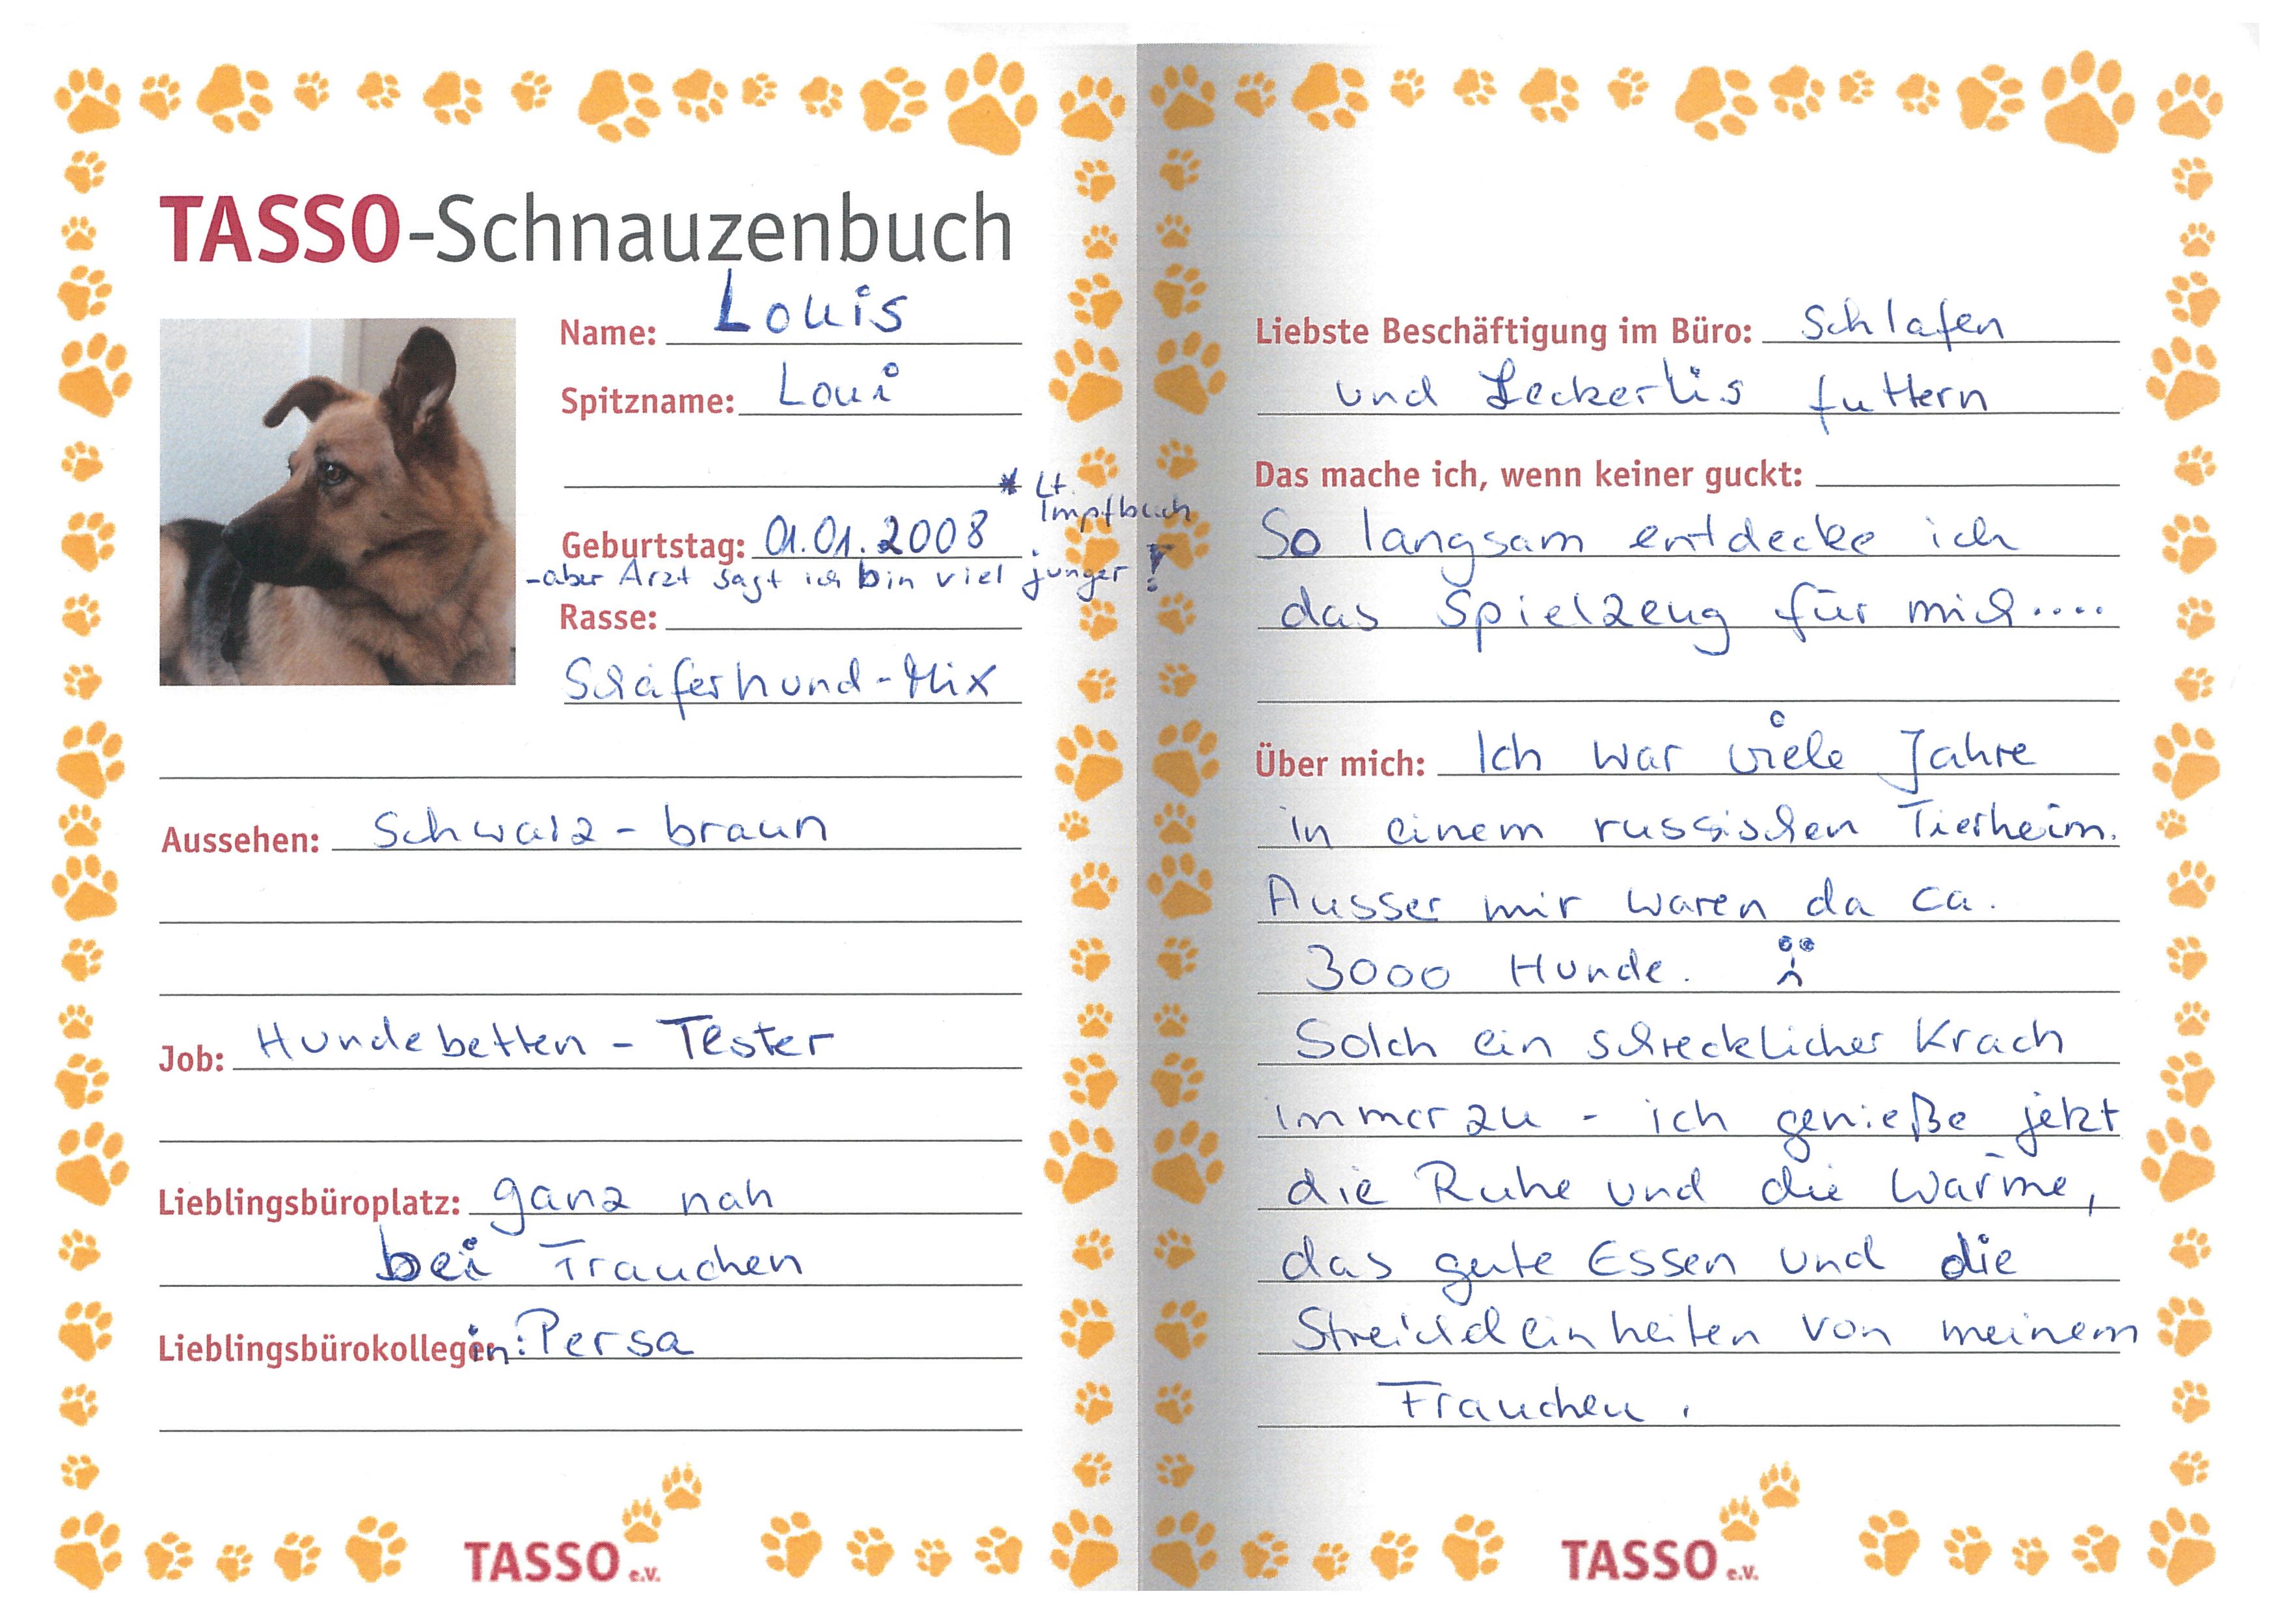 TASSO-Schnauzenbuch
Name: Louis
Spitzname: Loui
* Lt.
Impfbuch
Geburtstag: 01.01.2008
-aber Arzt sagt ich bin viel jünger!
Rasse:
Schäferhund-Mix
Aussehen: Schwarz-braun
Job: Hundebetten-Tester
Lieblingsbüroplatz: ganz nah
bei Frauchen
Lieblingsbürokollegin: Persa
TASSO e.V.
Liebste Beschäftigung im Büro: Schlafen
und Leckerlis futtern
Das mache ich, wenn keiner guckt:
So langsam entdecke ich
das Spielzeug für mich....
Über mich: Ich war viele Jahre
in einem russischen Tierheim.
Ausser mir waren da ca.
3000 Hunde.
Solch ein schrecklicher Krach
immerzu - ich genieße jetzt
die Ruhe und die Wärme,
das gute Essen und die
Streicheleinheiten von meinem
Frauchen.
TASSO e.V.